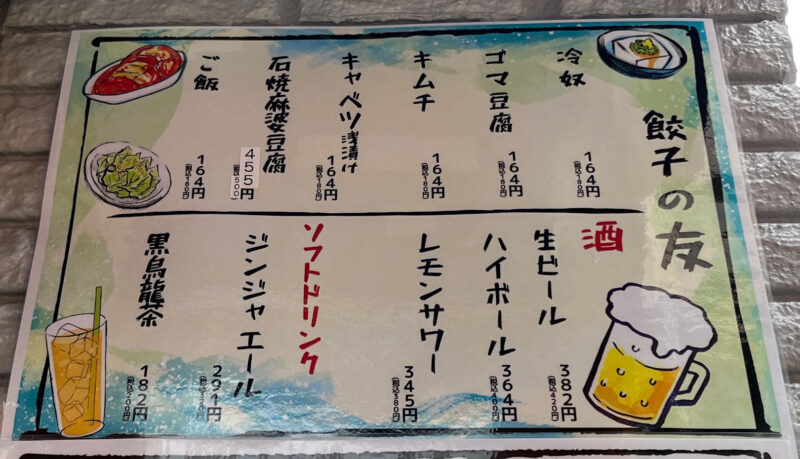 餃子の友
冷奴
164円
(税込180円)
ゴマ豆腐
164円
(税込180円)
キムチ
164円
(税込180円)
キャベツ浅漬け
164円
(税込180円)
石焼麻婆豆腐
455円
(税込500円)
ご飯
164円
(税込180円)
酒
生ビール
382円
(税込420円)
ハイボール
364円
(税込400円)
レモンサワー
345円
(税込380円)
ソフトドリンク
ジンジャエール
291円
(税込320円)
黒烏龍茶
182円
(税込200円)